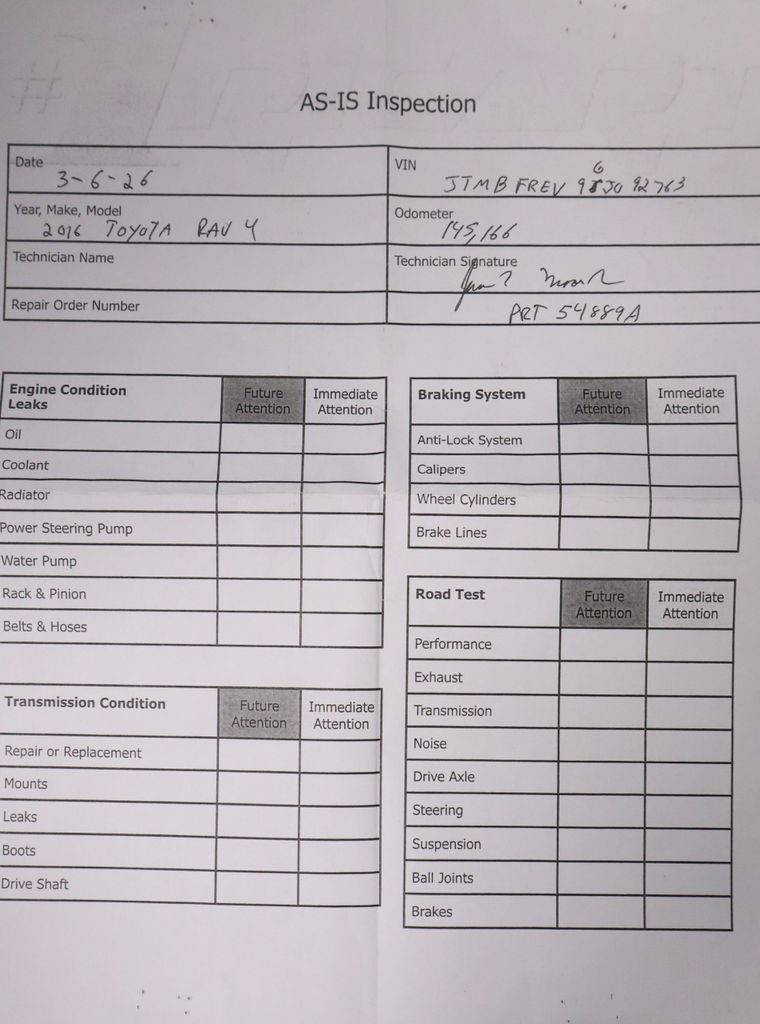 AS-IS Inspection
Date
3-6-26
VIN
JTMBFREV 9 J0 92763
6
Year, Make, Model
2016 TOYOTA RAV 4
Odometer
145,166
Technician Name
Technician Signature
Repair Order Number
PRT 54889A
Engine Condition
Leaks
Future Attention
Immediate Attention
Oil
Coolant
Radiator
Power Steering Pump
Water Pump
Rack & Pinion
Belts & Hoses
Transmission Condition
Future Attention
Immediate Attention
Repair or Replacement
Mounts
Leaks
Boots
Drive Shaft
Braking System
Future Attention
Immediate Attention
Anti-Lock System
Calipers
Wheel Cylinders
Brake Lines
Road Test
Future Attention
Immediate Attention
Performance
Exhaust
Transmission
Noise
Drive Axle
Steering
Suspension
Ball Joints
Brakes